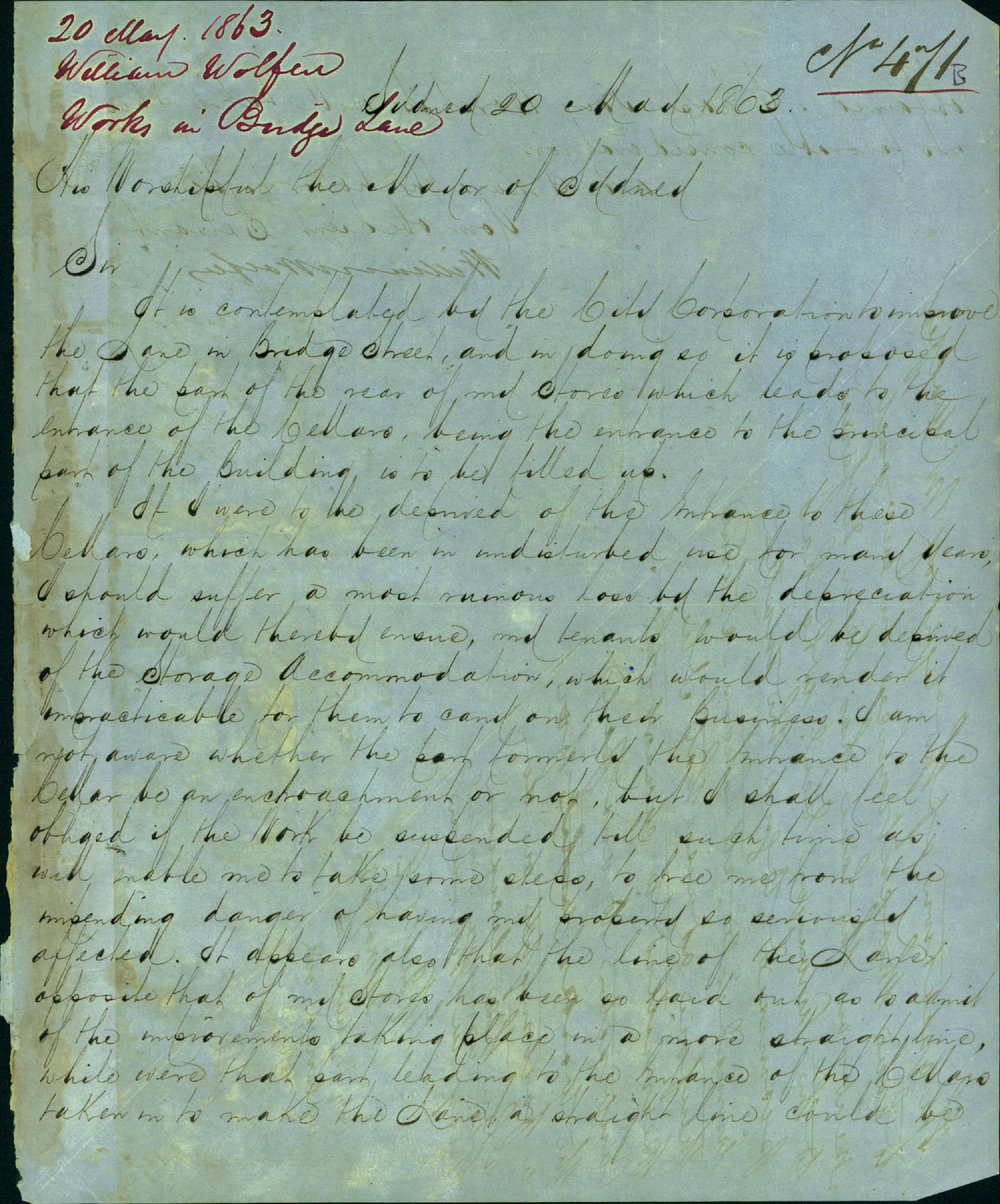 20 May. 1863.
William Wolfen
Works in Bridge Lane
No 471
B
Sydney 20 May 1863.
His Worshipful the Mayor of Sydney
Sir
It is contemplated by the City Corporation to improve
the Lane in Bridge Street, and in doing so it is proposed
that the part of the rear of my Stores which leads to the
entrance of the Cellars, being the entrance to the principal
part of the Building is to be filled up.
If I were to be deprived of the Entrance to these
Cellars, which has been in undisturbed use for many years,
I should suffer a most ruinous loss by the depreciation
which would thereby ensue, my tenants would be deprived
of the Storage Accommodation, which would render it
impracticable for them to carry on their Business. I am
not aware whether the part formerly the Entrance to the
Cellar be an encroachment or not, but I shall feel
obliged if the Work be suspended till such time as
will enable me to take some steps, to free me from the
impending danger of having my property so seriously
affected. It appears also that the line of the Lane
opposite that of my Stores has been so laid out as to admit
of the improvements taking place in a more straight line,
while were that part leading to the Entrance of the Cellars
taken in to make the Lane a straight line could be